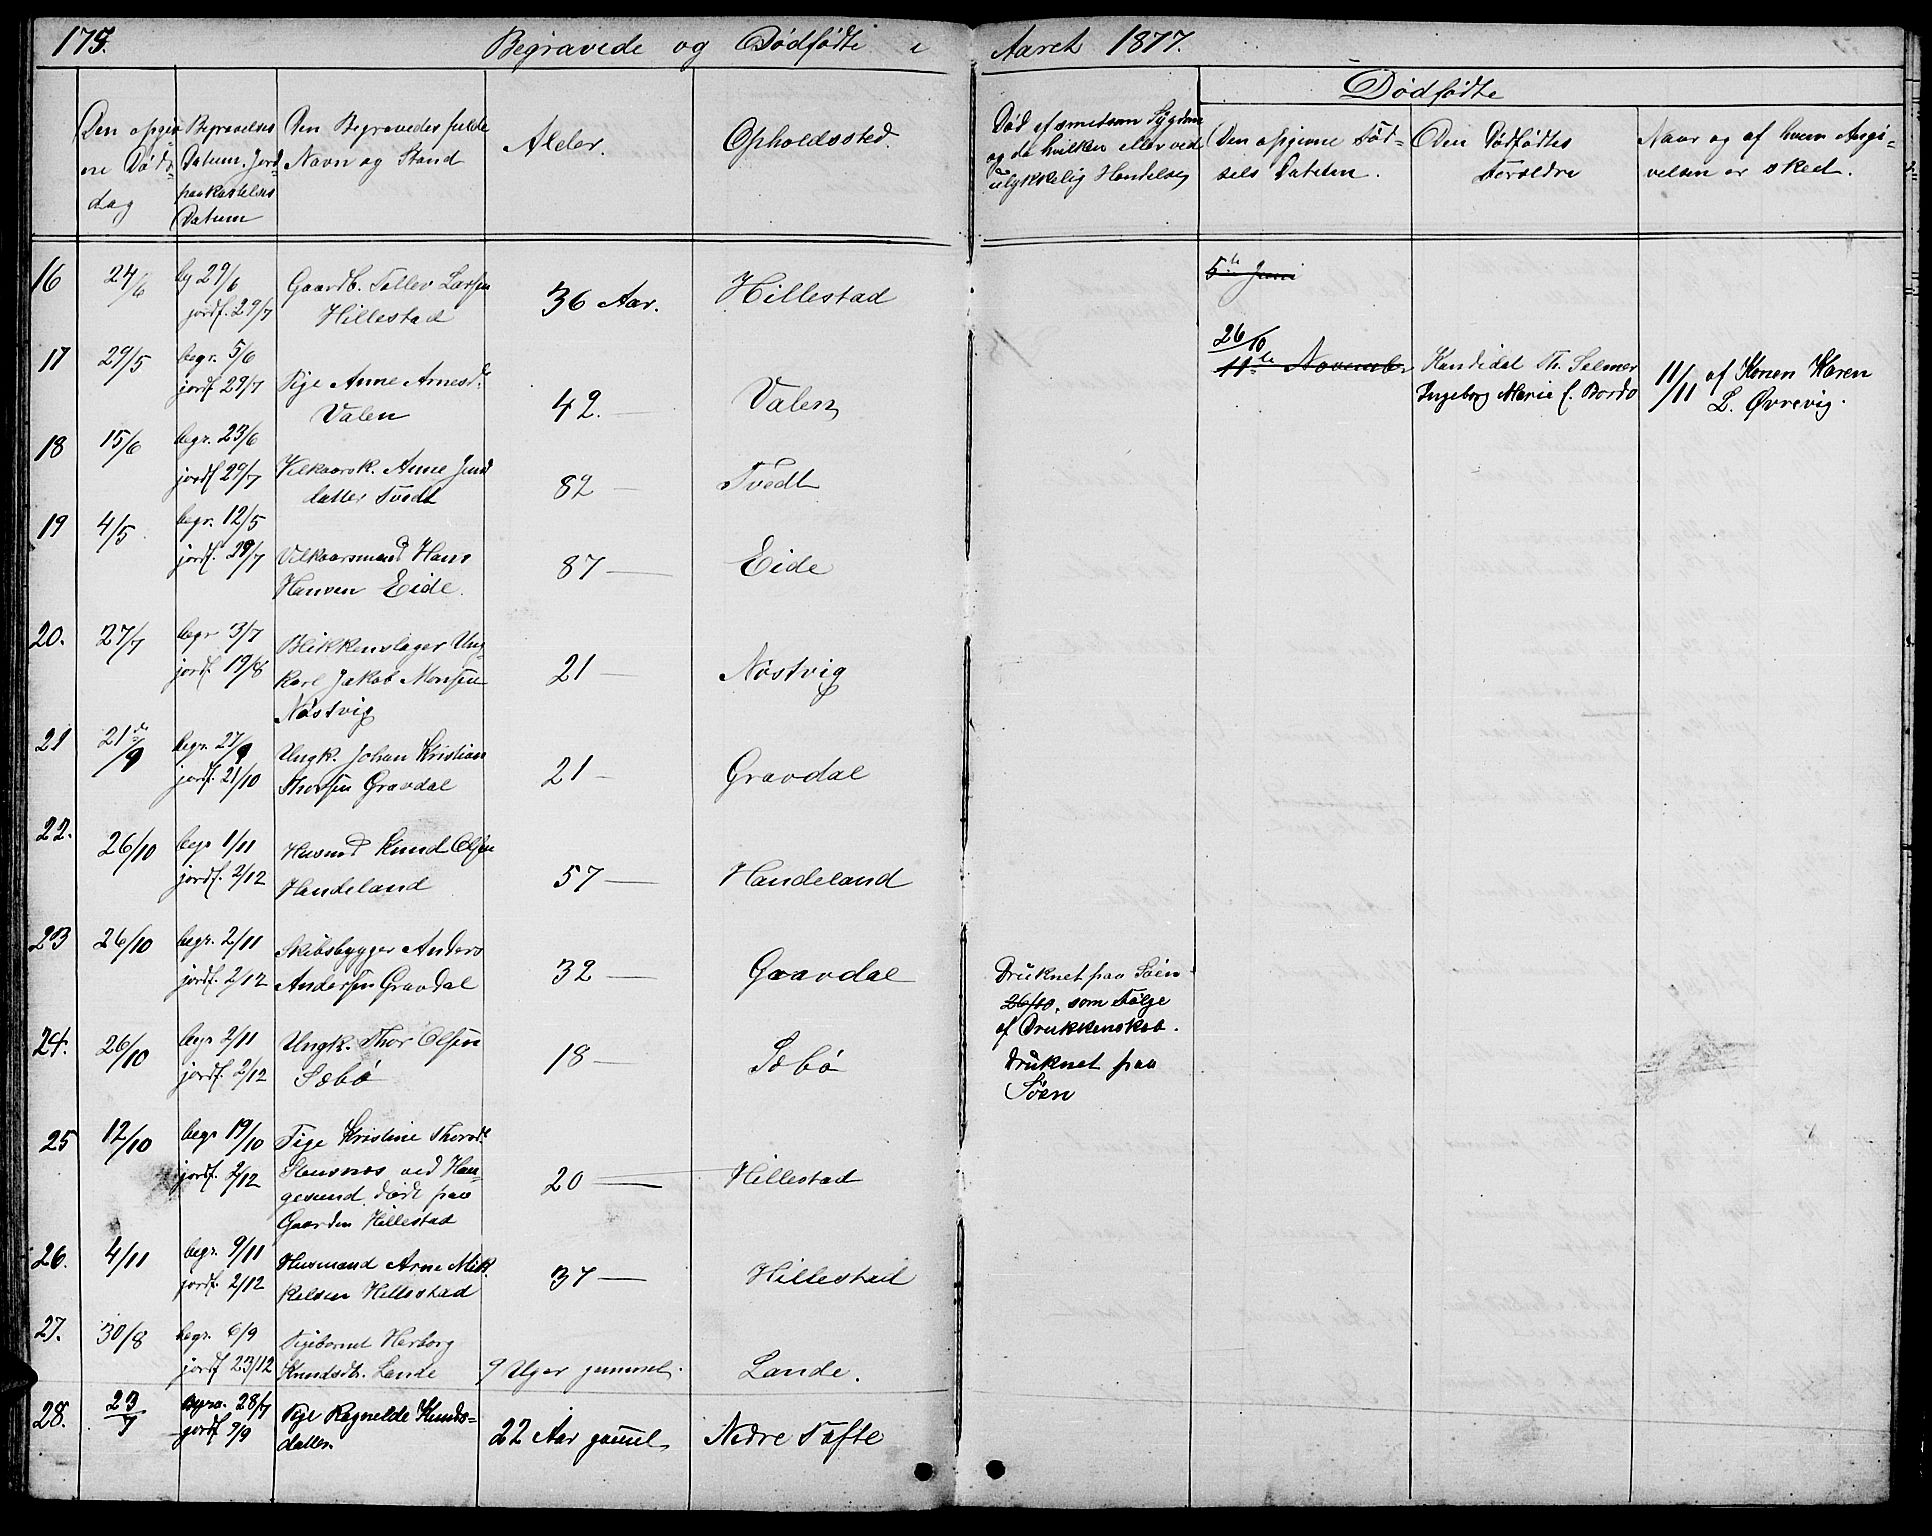 175.
Begravede og Dødfødte i
Aaret 1877.
Den opgiv-
ne Døds-
dag
Begravelses
Datum. Jord-
paakastelses
Datum
Den Begravedes fulde
Navn og Stand
Alder.
Opholdssted.
Død af smitsom Sygdom
og da hvilken eller ved
ulykkelig Hændelse
Dødfødte
Den opgivne Fød-
sels Datum.
Den Dødfødtes
Forældre
Naar og af hvem Angi-
velsen er skeet.
16 24/6 bg 29/6
jordf. 29/7
Gaardb. Tollev Larsen
Hillestad
36 Aar. Hillestad
5te Juni
17 29/5 begr. 5/6
jordf 29/7
Pige Anne Arnesd.
Valen
42. — Valen
26/10
11te November
Kandidat Th. Selmer
Ingeborg Marie C. Bordo
11/11 af Konen Karen
L. Øvrevig.
18 15/6 begr. 23/6
jordf 29/7
Vilkaarsk. Anne
datter Tvedt
82 — Tvedt
19 4/5. begr. 12/5
jordf. 29/7
Vilkaarsmand Hans
Hansen Eide.
87 — Eide
20. 27/7 begr 3/7
jordf 19/8
Blikkenslager Ung-
karl Jakob Monsen
Nøstvig
21 — Nøstvig
21 21de/9 begr. 27/9
jordf. 21/10
Ungk. Johan Kristian
Thorsen Gravdal
21 — Gravdal
22. 26/10 begr 1/11
jordf. 2/12
Husmd Knud Olsen
Handeland
57 — Handeland
23 26/10 begr. 2/11
jordf. 2/12
Skibsbygger Anders
Andersen Gravdal
32 — Gravdal
Druknet paa Søen
26/10, som Følge
af Drukkenskab.
24. 26/10 begr 2/11
jordf. 2/12
Ungk. Thor Olsen
Sæbø
18 — Sæbø
Druknet paa
Søen
25 12/10 begr 19/10
jordf. 2/12
Pige Kristine Thorsd.
ved Hau-
gesund, døde paa
Gaarden Hillestad
20 — Hillestad
26. 4/11 begr. 9/11
jordf. 2/12
Husmand Arne Mik
kelsen Hillestad
37 — Hillestad
27. 30/8 begr. 6/9
jordf 23/12
Pigebarnet Herborg
Knudsdtr. Lande
9 Uger gammel. Lande.
28. 23/7 begr. 28/7
jordf 9/9
Pige Ragnelde Knuds-
datter.
22 Aar gammel Nedre Tofte